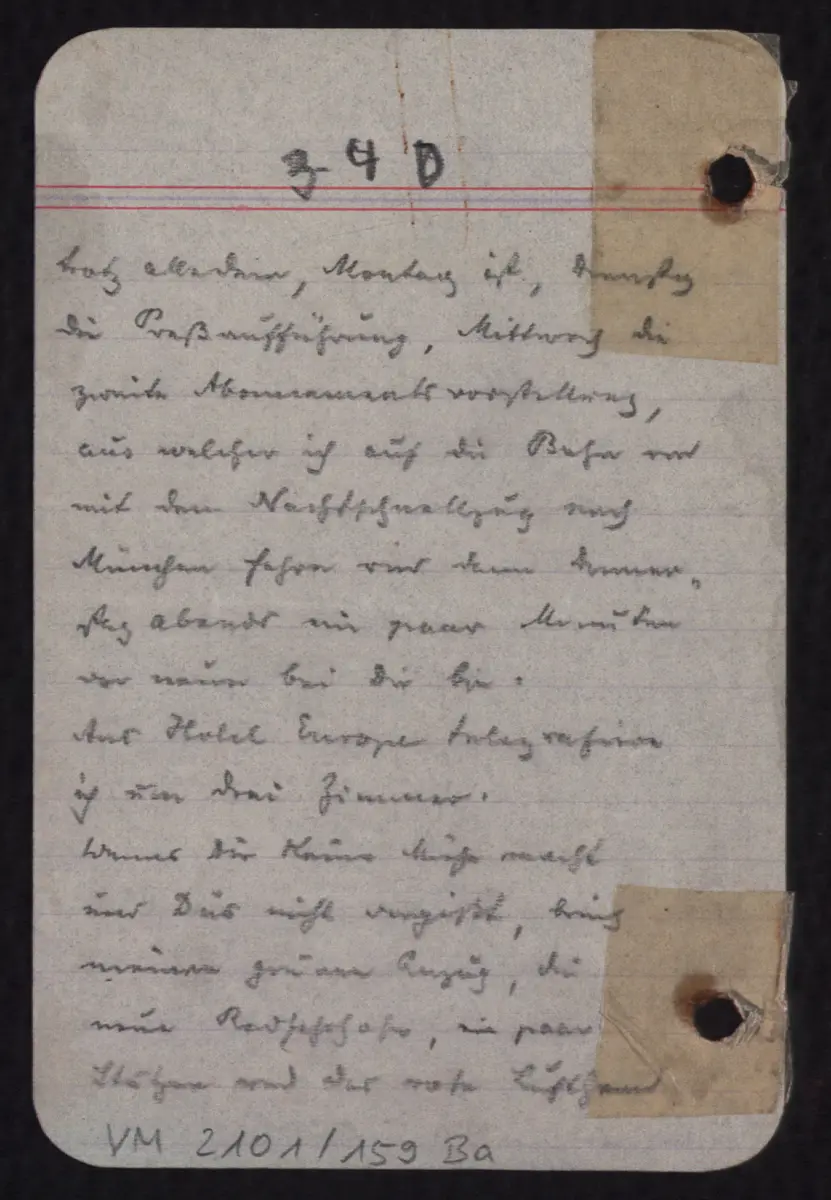 3 4 0
trotz alledem, Montag ist, Dienstag
die Preßaufführung, Mittwoch die
zweite Abonnementsvorstellung,
aus welcher ich auf die Bahn und
mit dem Nachtschnellzug nach
München fahre und dann Donner-
stag abends ein paar Minuten
vor neun bei Dir bin.
Ans Hotel Europe telegrafiere
ich um drei Zimmer.
Wenns Dir keine Mühe macht
und Dus nicht vergißt, bring
meinen grünen Anzug, die
neue, ein paar
Stutzen und das rote
VM 2101/159 Ba